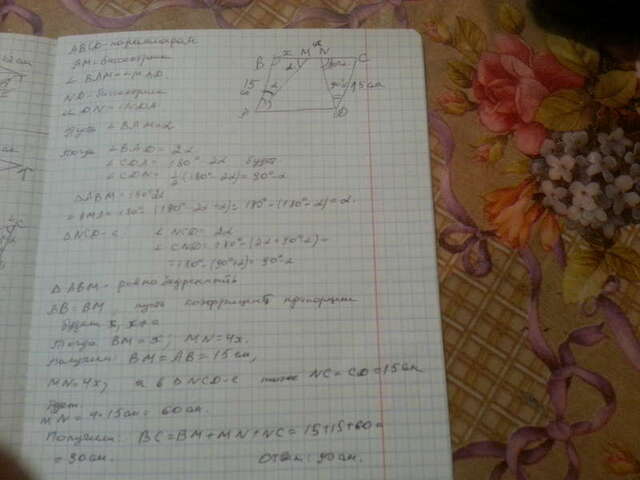 ABCD - параллелограм
AM - биссектриса
∠BAM = ∠MAD
ND - биссектриса
∠CDN = ∠NDA
Пусть ∠BAM = α
Тогда ∠BAD = 2α
∠CDA = 180° - 2α будет
∠CDN = 1/2 (180° - 2α) = 90° - α
ΔABM = 180° - 2α
∠BMA = 180° - (180° - 2α + α) = 180° - (180° - α) = α
ΔNCD - е ∠NCD = 2α
∠CND = 180° - (2α + 90° - α) =
= 180° - (90° + α) = 90° - α
ΔABM - равнобедренный
AB = BM, пусть коэффициент пропорции
будет x,
Тогда BM = x; MN = 4x.
Получаем: BM = AB = 15 см,
MN = 4x, а в ΔNCD - е также NC = CD = 15 см
Будет
MN = 4 · 15 см = 60 см.
Получаем: BC = BM + MN + NC = 15 + 15 + 60 =
= 90 см. Ответ: 90 см.
B x M N C
15 см
α
15 см
A D